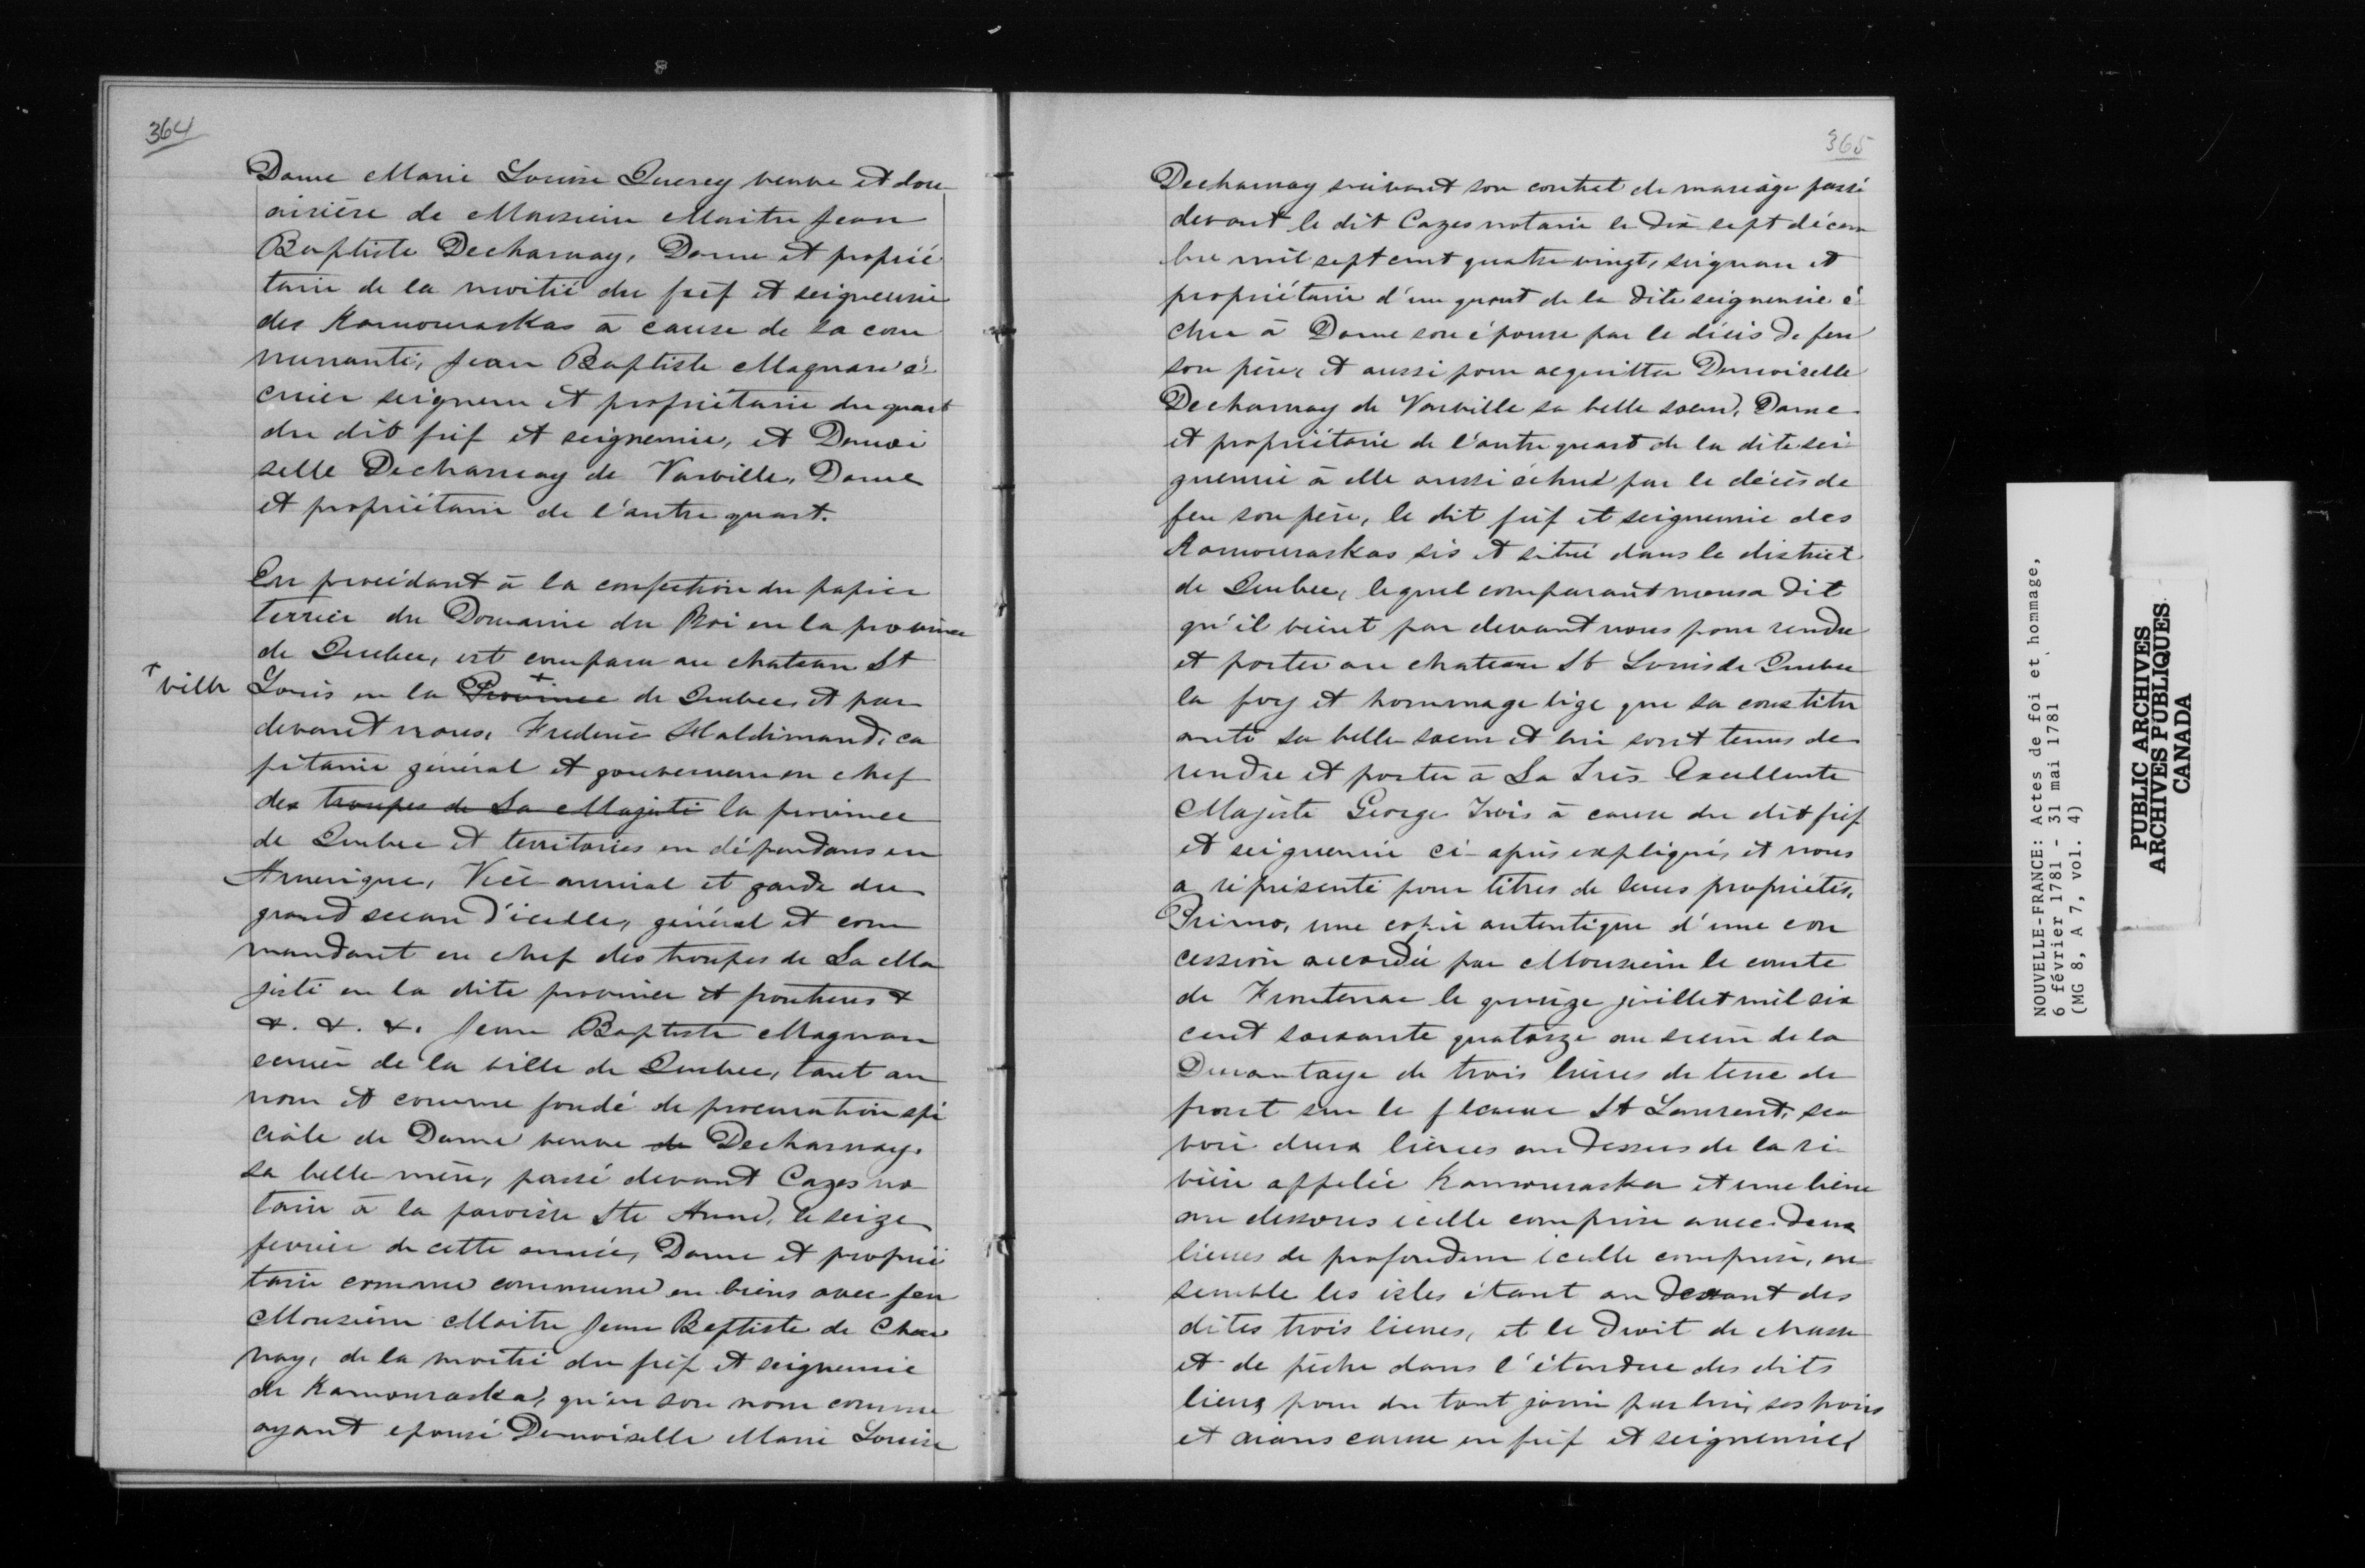 364
Dame Marie Louise Querey veuve et dou
airière de Monsieur Maitre Jean
Baptiste Decharnay, Dame et proprié
taire de la moitié du fief et seigneurie
des Kamouraskas à cause de sa com
munauté, Jean Baptiste Magnan é
cuier seigneur et propriétaire du quart
du dit fief et seigneurie, et Demoi
selle Decharnay de Varville, Dame
et propriétaire de l'autre quart.
En procédant à la confection du papier
terrier du Domaine du Roi en la province
de Quebec, est comparu au chateau St
+ ville
Louis en la Province + de Quebec, et par
devant nous, Frederic Haldimand, ca
pitaine général et gouverneur en chef
des troupes de Sa Majesté la province
de Quebec et territoires en dépendans en
Amerique, Vice-amiral et garde du
grand sceau d'icelle, général et com
mandant en chef des troupes de Sa Ma
jesté en la dite province et frontieres &
&. &. &. Jean Baptiste Magnan
ecuier de la ville de Quebec, tant au
nom et comme fondé de procuration spé
ciale de Dame veuve de Decharnay
sa belle mère, passé devant Cazes no
taire à la paroisse Ste Anne, le seize
fevrier de cette année, Dame et proprié
taire comme commune en biens avec feu
Monsieur Maitre Jean Baptiste de Char
nay, de la moitié du fief et seigneurie
de Kamouraska, qu'en son nom comme
ayant epousé Demoiselle Marie Louise
365
Decharnay suivant son contrat de mariage passé
devant le dit Cazes notaire le dix sept décem
bre mil sept cent quatre vingt, seigneur et
propriétaire d'un quart de la dite seigneurie é
chu à Dame son épouse par le décès de feu
son père, et aussi pour acquitter Demoiselle
Decharnay de Varville sa belle soeur, Dame
et propriétaire de l'autre quart de la dite sei
gneurie à elle aussi échue par le décès de
feu son père, le dit fief et seigneurie des
Kamouraskas sis et situé dans le district
de Quebec, lequel comparant nous a dit
qu'il vient par devant nous pour rendre
et porter au chateau St Louis de Quebec
la foy et hommage lige que sa constitu
ante sa belle soeur et lui sont tenus de
rendre et porter à Sa Très Excellente
Majesté George Trois à cause du dit fief
et seigneurie ci-après expliqué, et nous
a réprésenté pour titres de leurs propriétés,
Primo, une copie autentique d'une con
cession accordée par Monsieur le comte
de Frontenac le quinze juillet mil six
cent soixante quatorze au sieur de la
Durantaye de trois lieues de terre de
front sur le fleuve St Laurent, sca
voir deux lieues au dessus de la ri
vière appelée Kamouraska et une lieue
au dessous icelle comprise avec deux
lieues de profondeur icelle comprise, en
semble les isles étant au devant des
dites trois lieues, et le droit de chasse
et de pêche dans l'étendue des dits
lieux pour du tout jouir par lui, ses hoirs
et aians cause en fief et seigneurie
NOUVELLE-FRANCE: Actes de foi et hommage,
6 février 1781 - 31 mai 1781
(MG 8, A 7, vol. 4)
PUBLIC ARCHIVES
ARCHIVES PUBLIQUES
CANADA